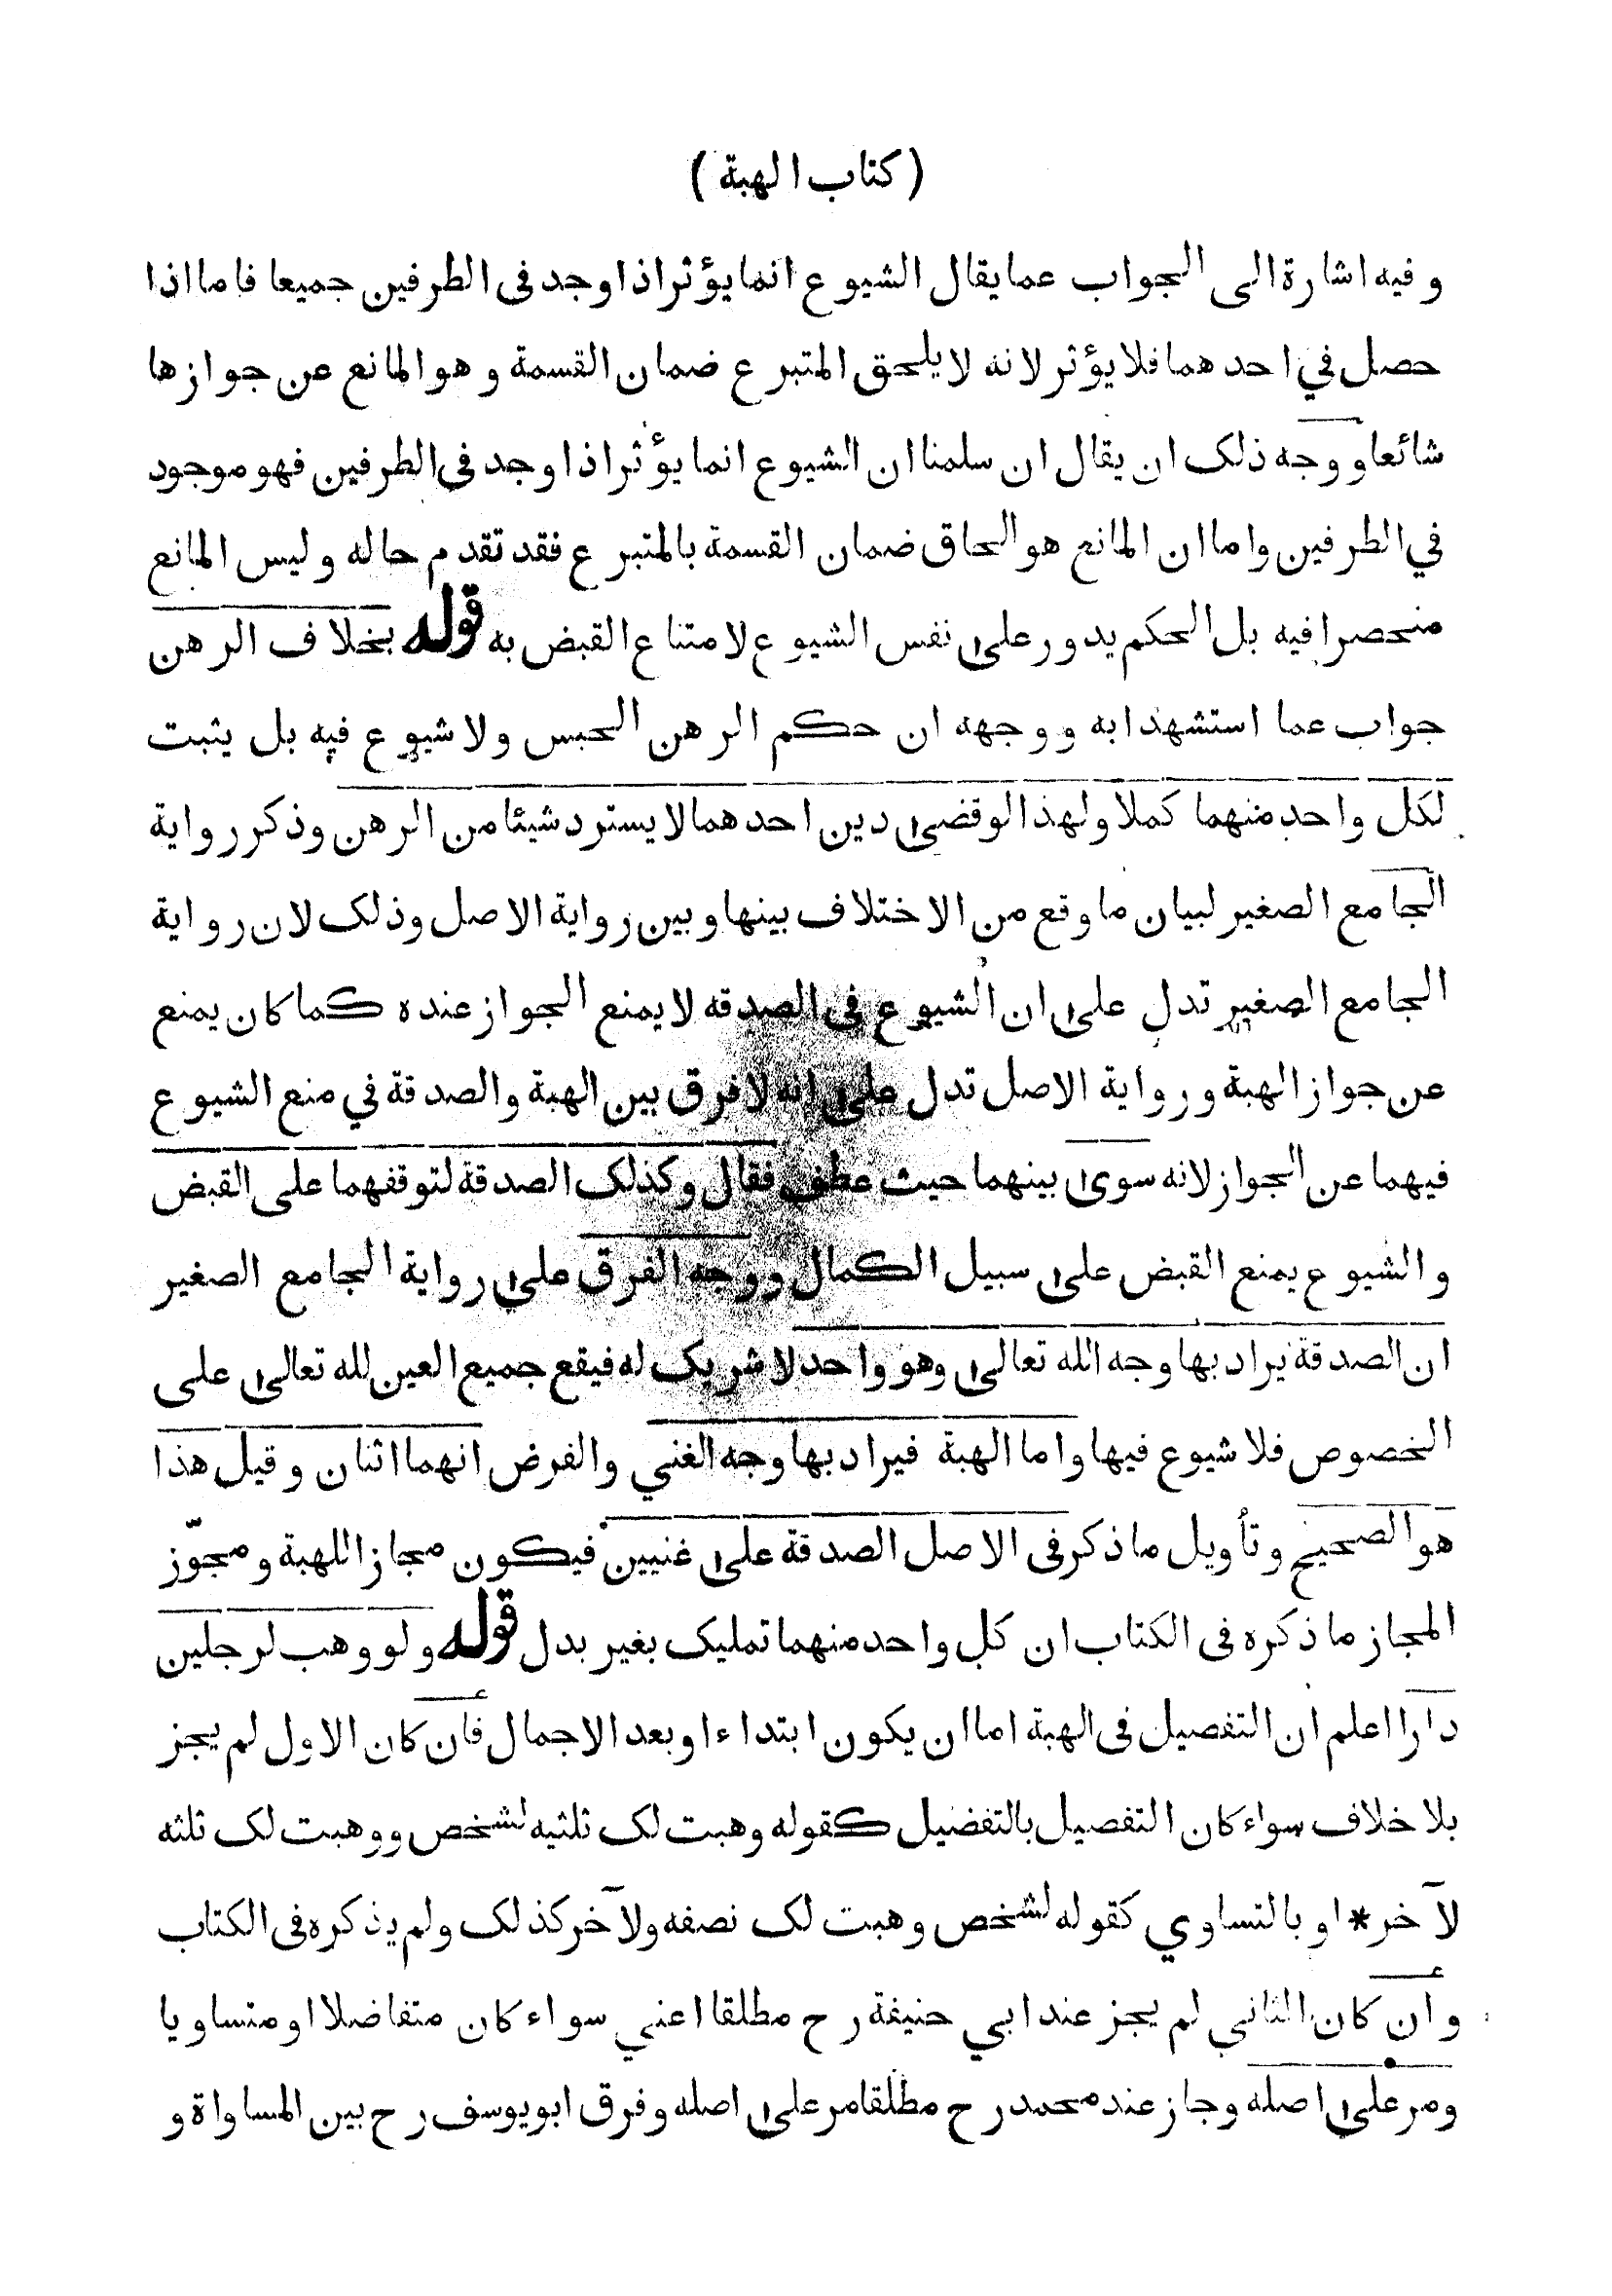 ( كتاب الهبة )
وفيه اشارة الى الجواب عما يقال الشيوع انما يؤثر اذا وجد فى الطرفين جميعا فاما اذا
حصل في احدهما فلا يؤثر لانه لا يلحق المتبرع ضمان القسمة وهو المانع عن جوازها
شائعا ووجه ذلك ان يقال ان سلمنا ان الشيوع انما يؤثر اذا وجد فى الطرفين فهو موجود
في الطرفين واما ان المانع هو الحاق ضمان القسمة بالمتبرع فقد تقدم حاله وليس المانع
منحصرا فيه بل الحكم يدور على نفس الشيوع لامتناع القبض به قوله بخلاف الرهن
جواب عما استشهدا به ووجهه ان حكم الرهن الحبس ولا شيوع فيه بل يثبت
لكل واحد منهما كملا ولهذا لو قضى دين احدهما لا يسترد شيئا من الرهن وذكر رواية
الجامع الصغير لبيان ما وقع من الاختلاف بينها وبين رواية الاصل وذلك لان رواية
الجامع الصغير تدل على ان الشيوع فى الصدقه لا يمنع الجواز عنده كما كان يمنع
عن جواز الهبة ورواية الاصل تدل على انه لا فرق بين الهبة والصدقة في منع الشيوع
فيهما عن الجواز لانه سوى بينهما حيث عطف فقال وكذلك الصدقة لتوقفهما على القبض
والشيوع يمنع القبض على سبيل الكمال ووجه الفرق على رواية الجامع الصغير
ان الصدقة يراد بها وجه الله تعالى وهو واحد لا شريك له فيقع جميع العين لله تعالى على
الخصوص فلا شيوع فيها واما الهبة فيراد بها وجه الغني والفرض انهما اثنان وقيل هذا
هو الصحيح وتأويل ما ذكر فى الاصل الصدقة على غنيين فيكون مجازا للهبة ومجوّز
المجاز ما ذكره فى الكتاب ان كل واحد منهما تمليك بغير بدل قوله ولو وهب لرجلين
دارا اعلم ان التفصيل فى الهبة اما ان يكون ابتداء او بعد الاجمال فأن كان الاول لم يجز
بلا خلاف سواء كان التفصيل بالتفضيل كقوله وهبت لك ثلثيه لشخص ووهبت لك ثلثه
لآخر * او بالتساوي كقوله لشخص وهبت لك نصفه ولآخر كذلك ولم يذكره فى الكتاب
وأن كان الثاني لم يجز عند ابي حنيفة رح مطلقا اعني سواء كان متفاضلا او متساويا
ومر على اصله وجاز عند محمد رح مطلقا مر على اصله وفرق ابو يوسف رح بين المساواة و